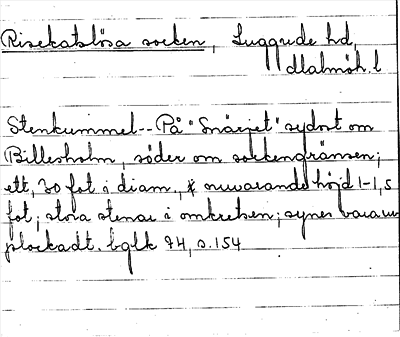 Risekatslösa socken, Luggude hd,
Malmöh. l
Stenkummel--På "Snärjet" sydost om
Billesholm, söder om sockengränsen;
ett, 30 fot i diam., nuvarande höjd 1-1,5
fot; stora stenar i omkretsen; synes vara ur
plockadt. bglk 74, s. 154